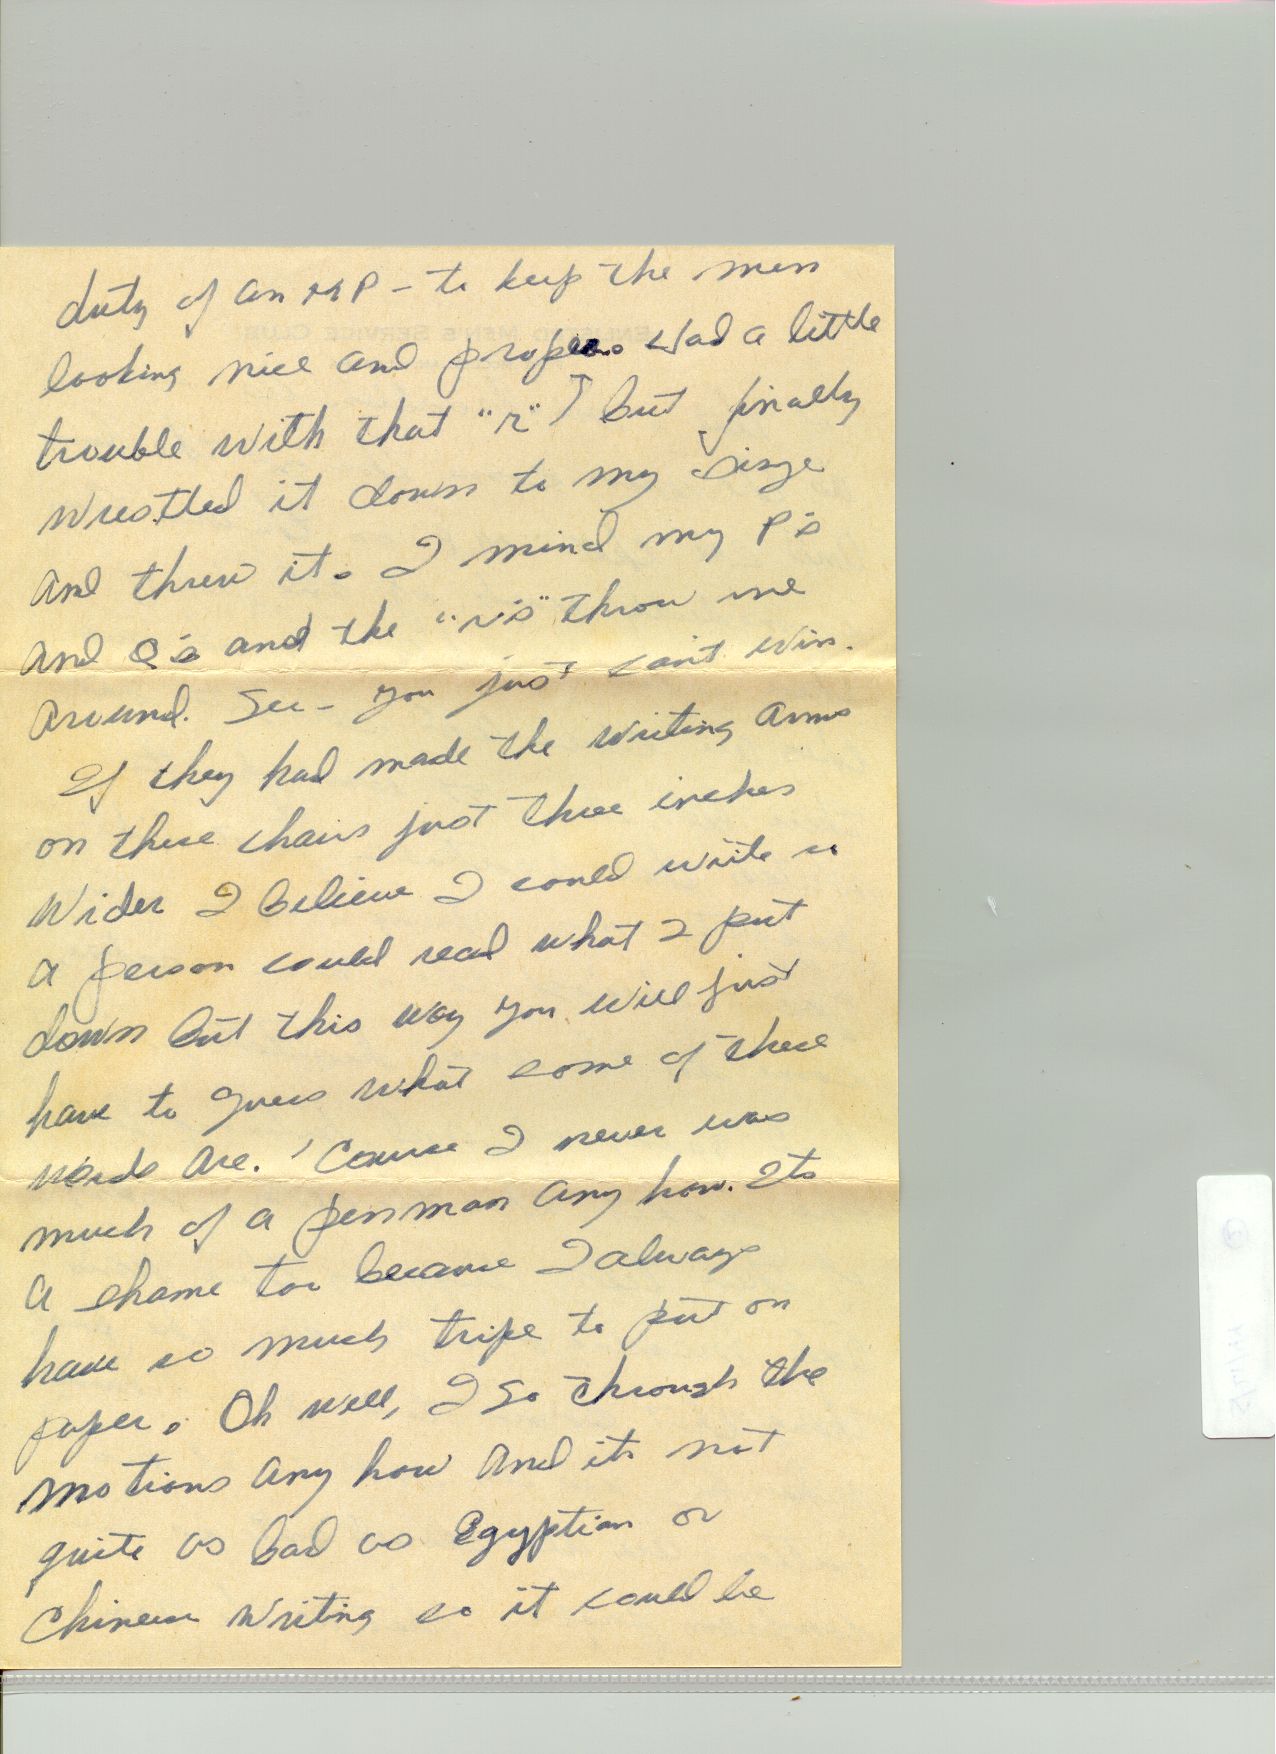 duty of an MP - to keep the men
looking nice and proper. Had a little
trouble with that "r" ↑ but finally
wrestled it down to my size
and threw it. I mind my P's
and Q's and the "r's" throw me
around. See - you just can't win.
If they had made the writing arms
on these chairs just three inches
wider I believe I could write so
a person could read what I put
down but this way you will just
have to guess what some of these
words are. 'Course I never was
much of a penman any how. Its
a shame too because I always
have so much tripe to put on
paper. Oh well, I go through the
motions any how and its not
quite as bad as Egyptian or
Chinese writing so it could be
ENLISTED MEN'S SERVICE CLUB